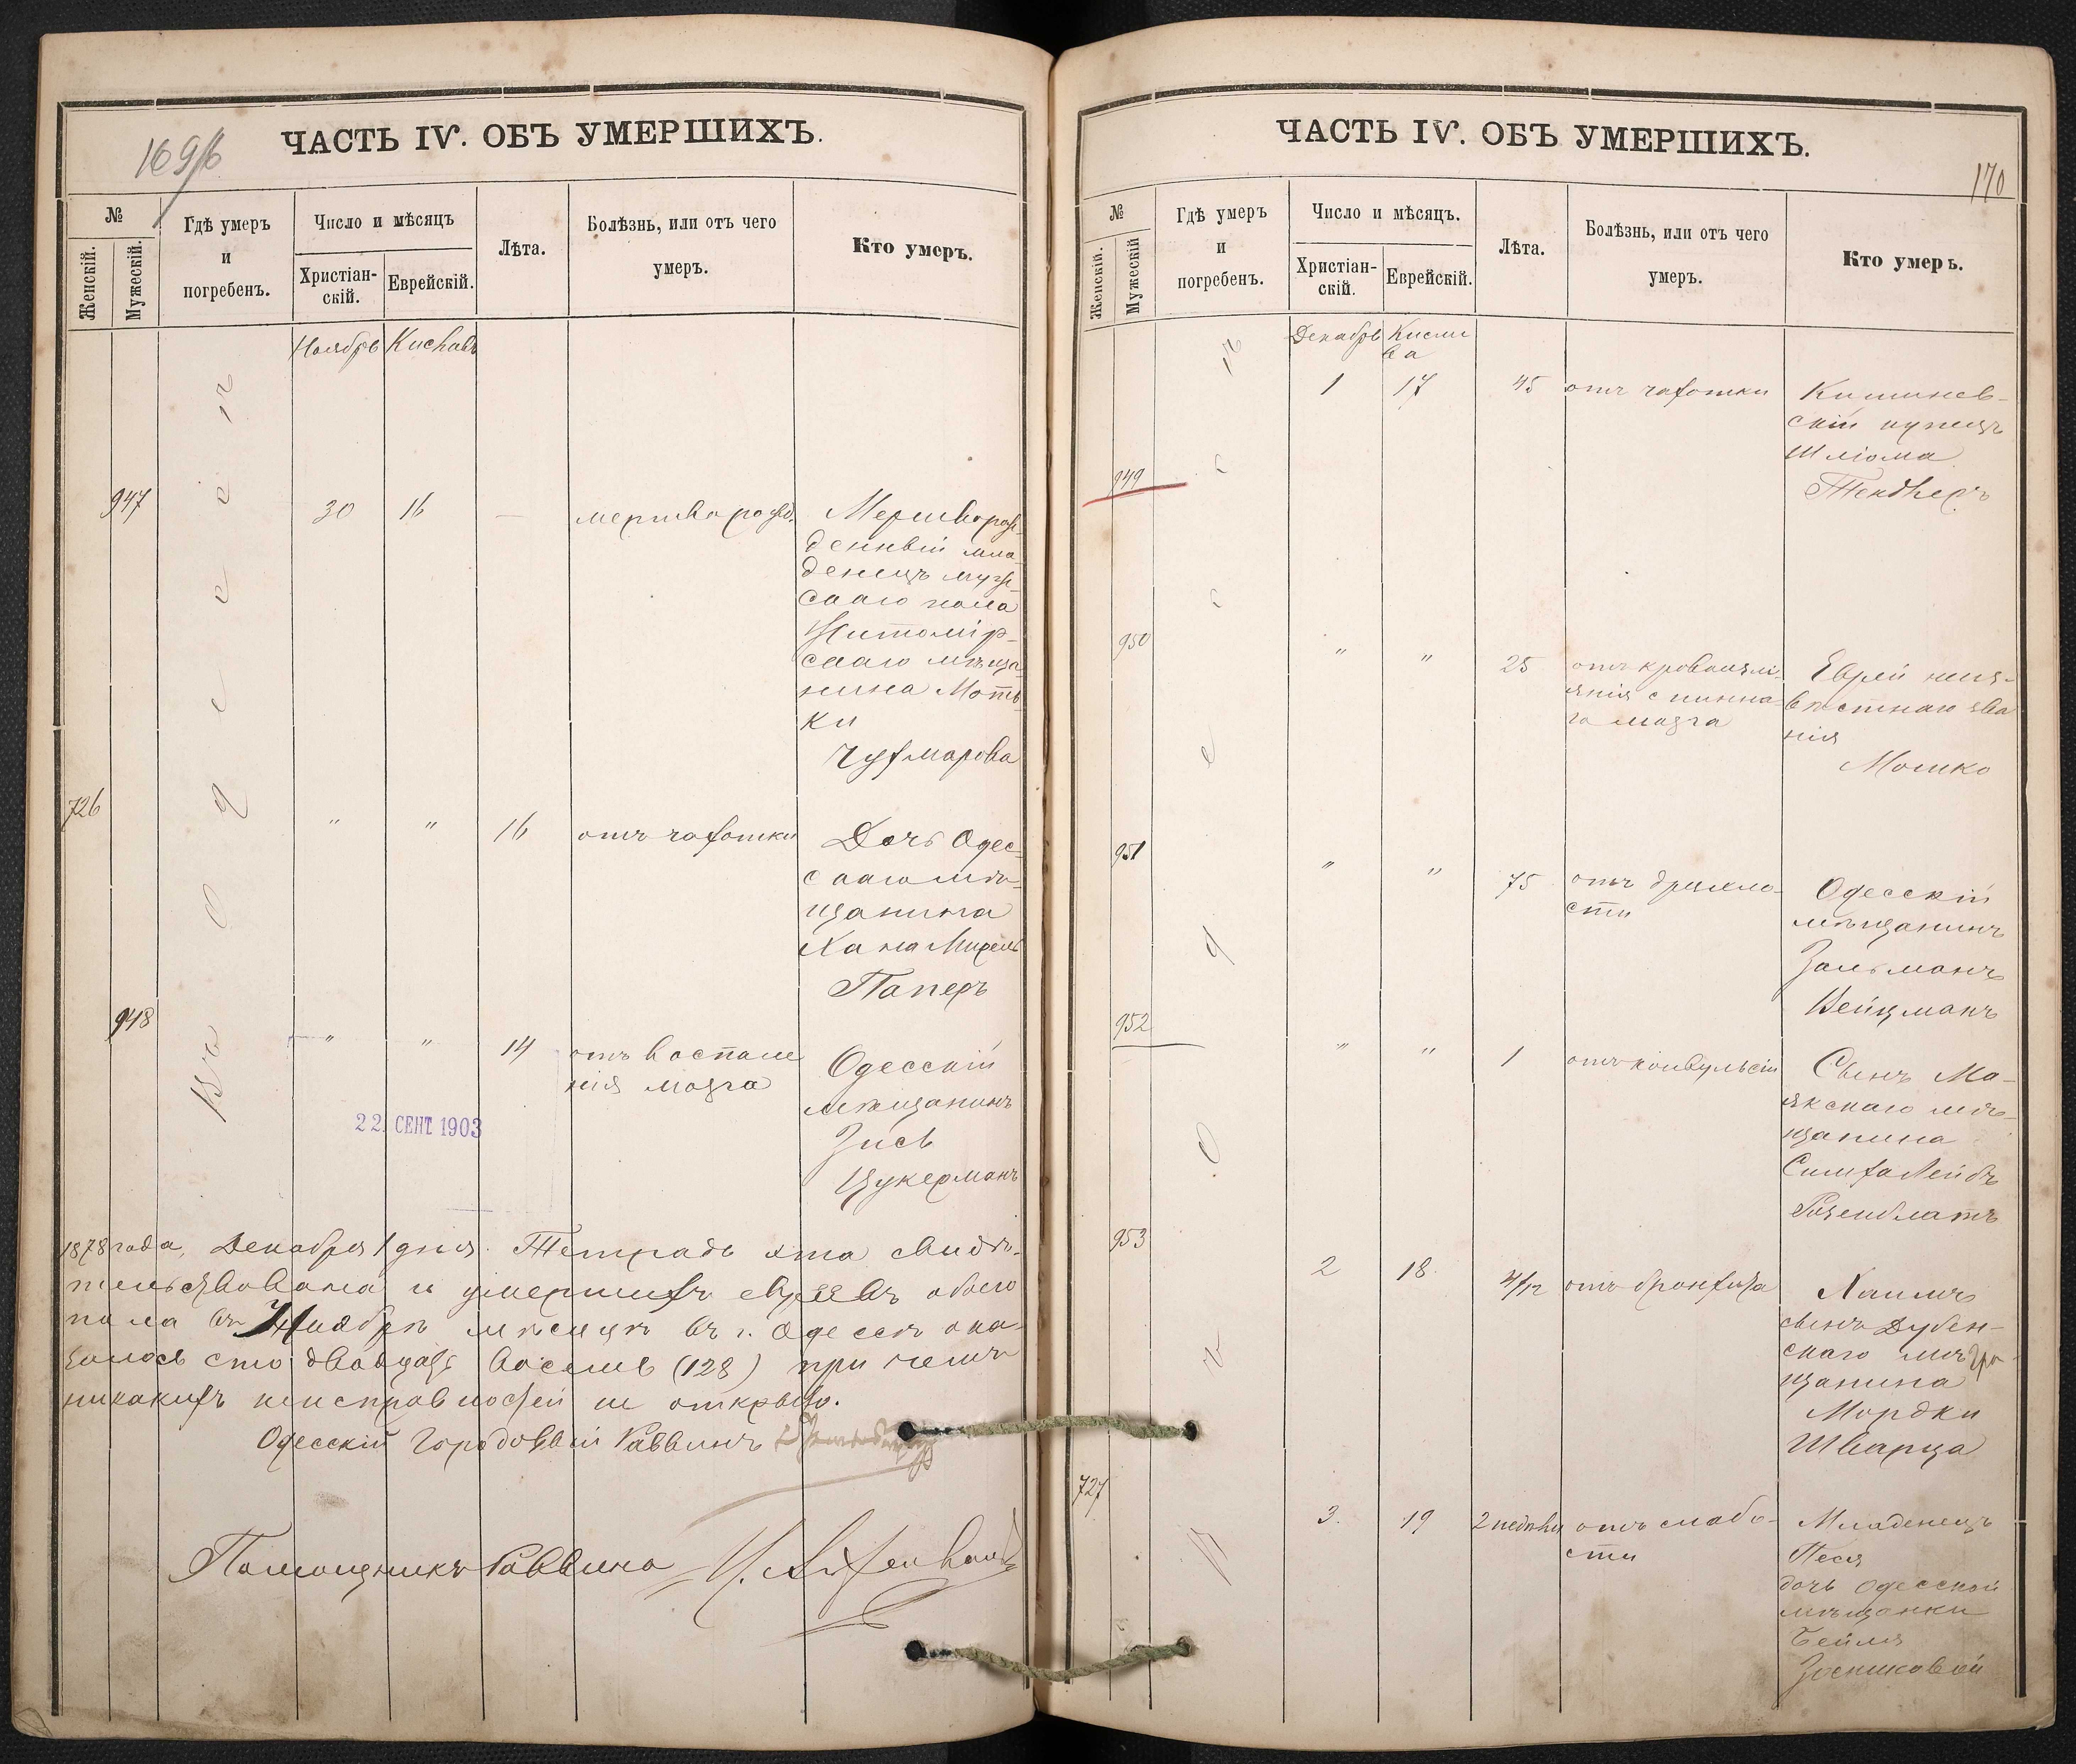 169/б
ЧАСТЬ IV. ОБЪ УМЕРШИХЪ.
№
Женскій.
Мужескій.
Гдѣ умеръ
и
погребенъ.
Число и мѣсяцъ
Христіан-
скій.
Еврейскій.
Лѣта.
Болѣзнь, или отъ чего
умеръ.
Кто умеръ.
Ноябрь Кислевъ
Въ Одессѣ
947 30 16 — мертворожд.
Мертворож-
денный мла-
денецъ муже-
скаго пола
Житомір-
скаго мѣща-
нина Моть-
ки
Чухмарова
726 " " 16 отъ чахотки
Дочь Одес-
скаго мѣ-
щанина
Хана Мирель
Паперъ
948 " " 14 отъ воспале
нія мозга
Одесскій
мѣщанинъ
Зись
Цукерманъ
22. СЕНТ. 1903
1878 года, Декабря 1 дня. Тетрадь эта свидѣ-
тельствована и умершихъ евреевъ обоего
пола въ Ноябрѣ мѣсяцѣ въ г. Одессѣ ока-
залось сто двадцать восемь (128) при чемъ
никакихъ неисправностей не открыто.
Одесскій Городовый Раввинъ
Помощникъ Раввина
ЧАСТЬ IV. ОБЪ УМЕРШИХЪ.
170
№
Женскій.
Мужескій
Гдѣ умеръ
и
погребенъ.
Число и мѣсяцъ.
Христіан-
скій.
Еврейскій.
Лѣта.
Болѣзнь, или отъ чего
умеръ.
Кто умеръ.
Декабрь Кисли
ва
Въ Одессѣ
949 1 17 45 отъ чахотки
Кишинев-
скій купецъ
Шліома
Тендлеръ
950 " " 25 отъ кровоизлі-
янія спинна-
го мозга
Еврей неиз-
вѣстнаго зва
нія
Мошко
951 " " 75 отъ дряхло-
сти
Одесскій
мѣщанинъ
Зальманъ
Вейцманъ
952 " " 1 отъ конвульсій
Сынъ Ма-
якскаго мѣ-
щанина
Симха Лейбъ
Розенблатъ
953 2 18 4/12 отъ бронхита
Хаимъ
сынъ Дубен-
скаго мѣ-
щанина
Мордки
Шварца
727 3. 19 2 недѣли отъ слабо-
сти
Младенецъ
Песя
дочь Одесской
мѣщанки
Бейля